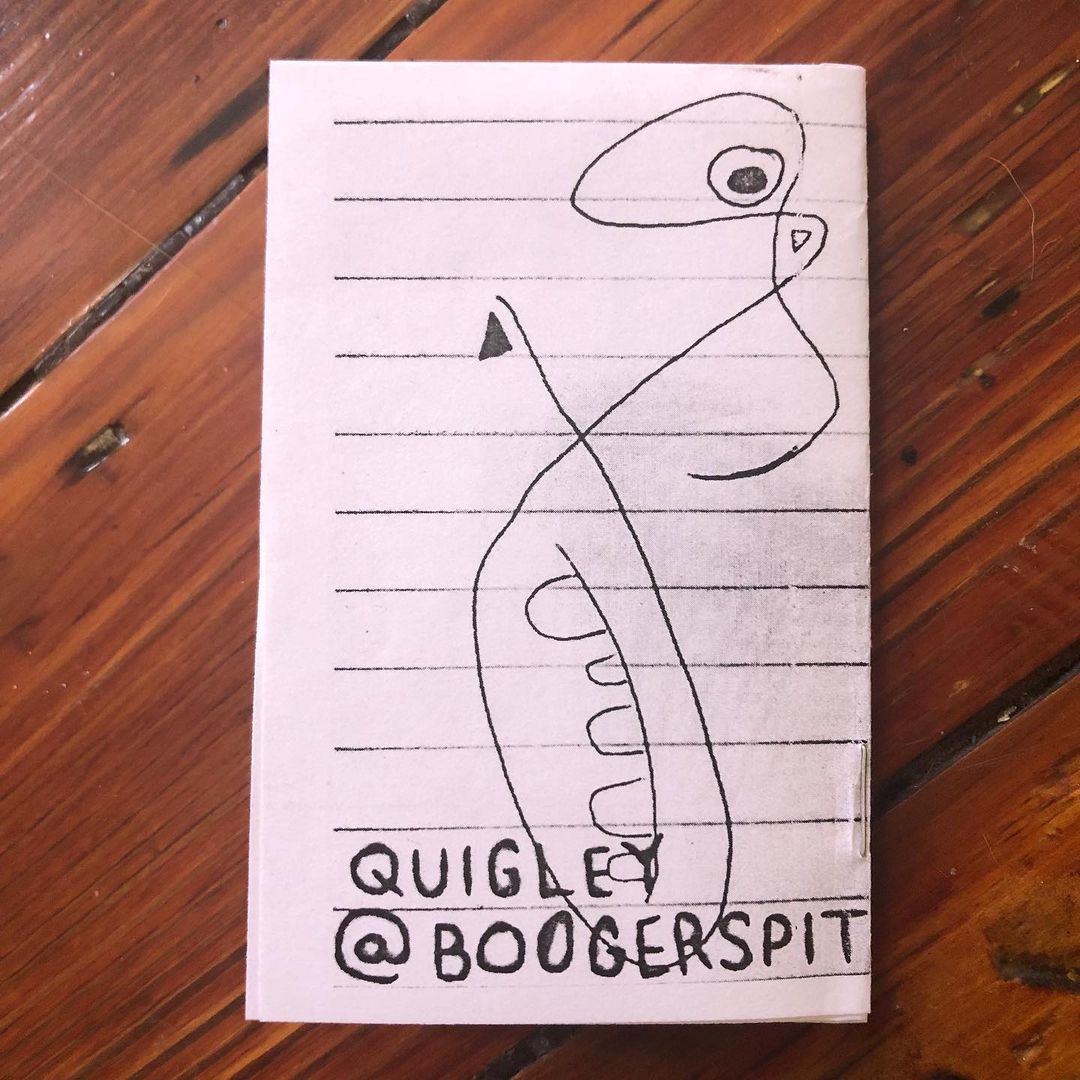 QUIGLEY
@BOOGERSPIT